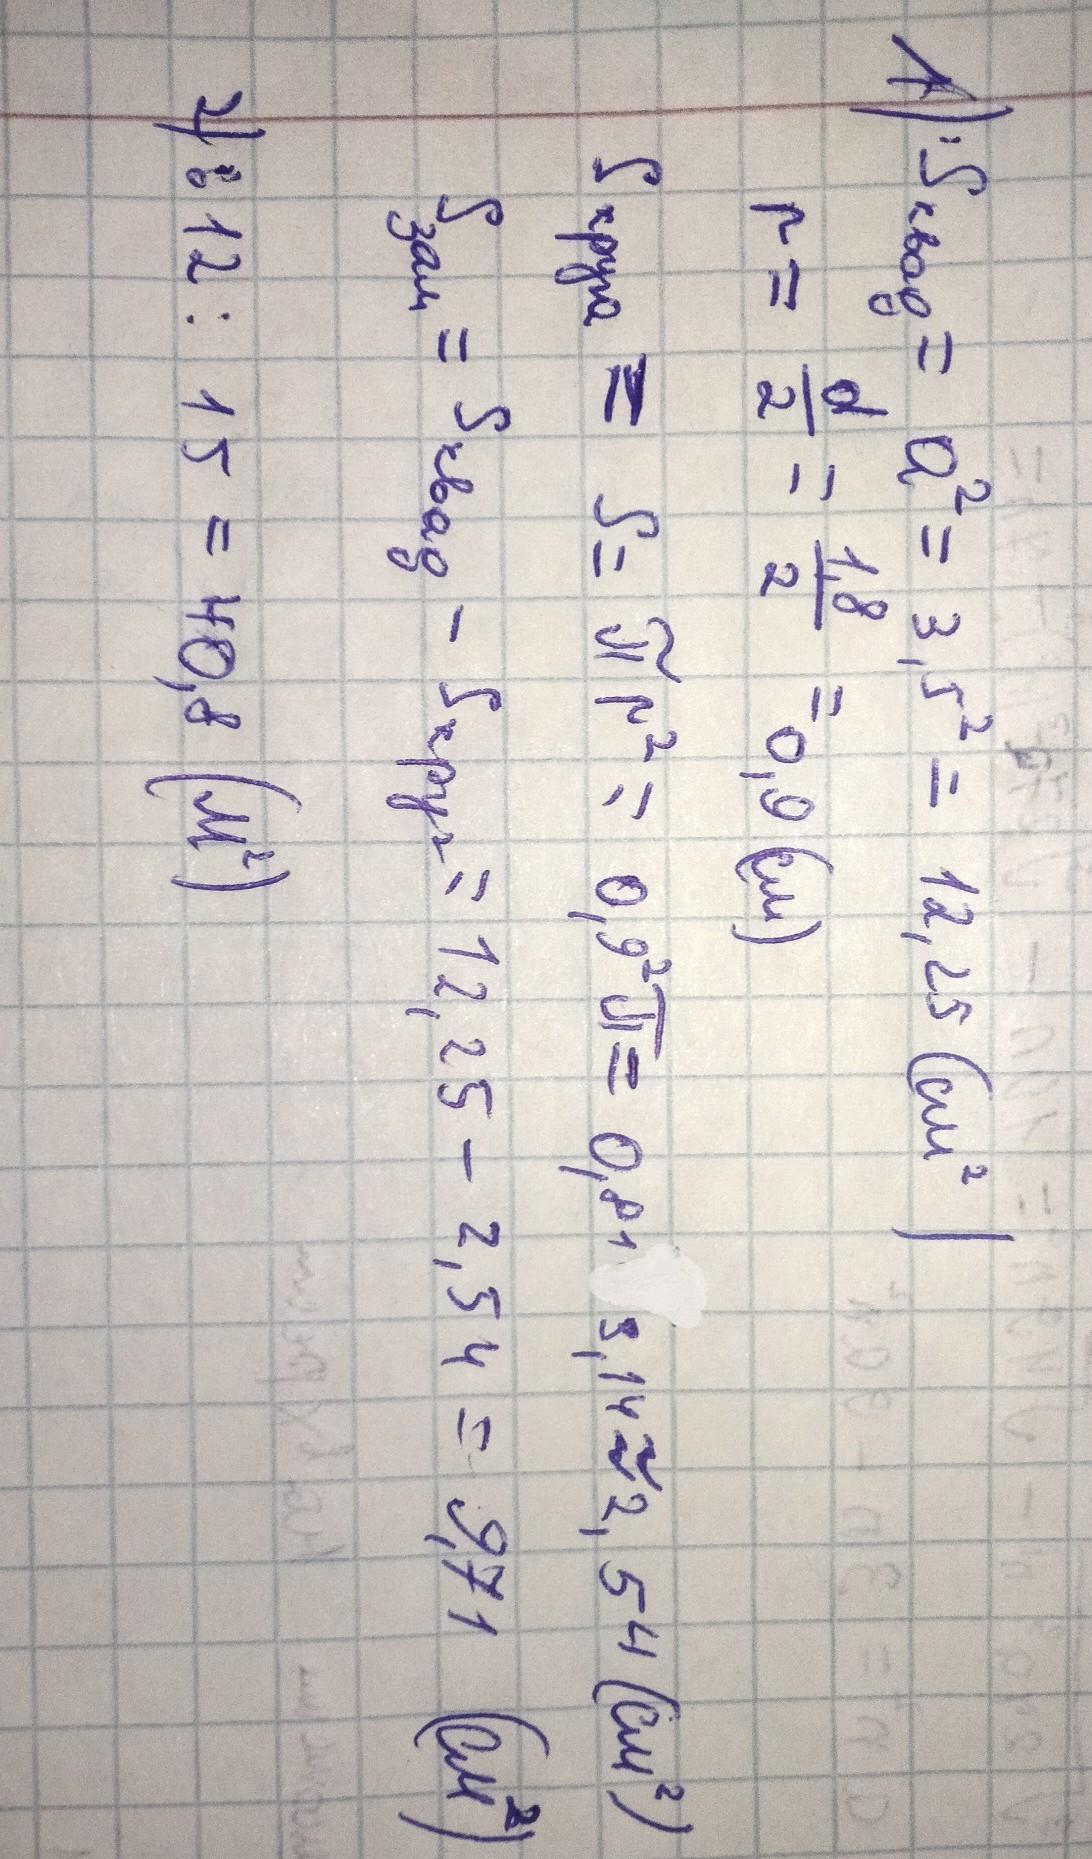 1) Sквад = a² = 3,5² = 12,25 (см²)
r = d/2 = 1,8/2 = 0,9 (см)
Sкруга = S = πr² = 0,9²π = 0,81 3,14 ≈ 2,54 (см²)
Sзам = Sквад - Sкруг = 12,25 - 2,54 = 9,71 (см²)
2) 612 : 15 = 40,8 (м²)